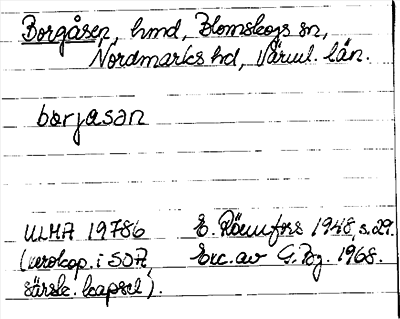 Borgåsen, hmd, Blomskogs sn,
Nordmarks hd, Värml. län.
borjasan
ULMA 19786 E. Rönnfors 1948, s. 29.
(xerokop. i SOA, Exc. av G. Bg. 1968.
särsk. kapsel).